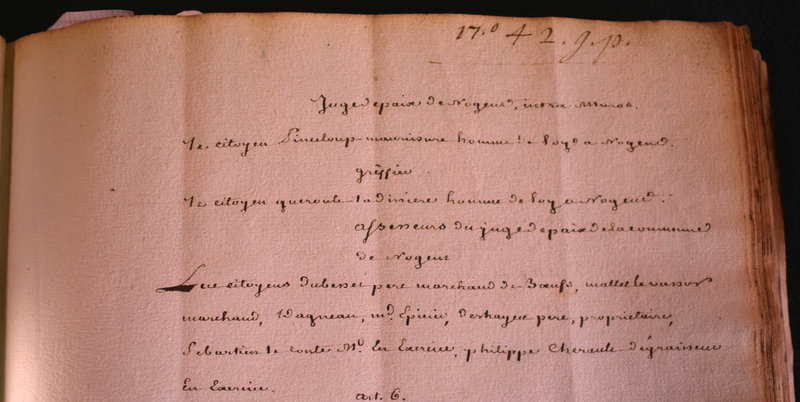 17.º 4 2. g. p.
Juge de paix de Nogent, intra Muros.
Le citoyen Pinceloup maurissure homme de loy a Nogent.
greffier
Le citoyen queroute ladiviere homme de loy a Nogent.
assesseurs du juge de paix de la commune
de Nogent
Les citoyens dubesset pere marchand de Bœufs, mallet le vassor
marchand, Dagneau, md. Epicier, deshayes pere, proprietaire,
Sebastien le conte Md. En Exercice, philippe Cherault dégraisseur
En Exercice.
art. 6.